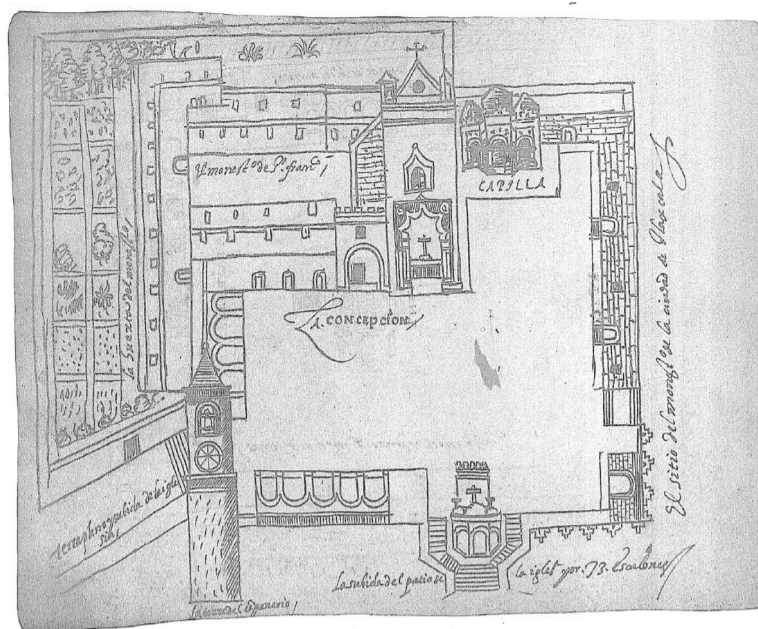 El monestº de S. franᶜº
CAPILLA
la huerta del monestº
LA CONCEPCION
El sitio del monestº de la ciudad de Tlaxcala
terrapleno y subida de la igle
sia
la torre del campanario
La subida del patio de
la iglesᵃ por 73 escalones